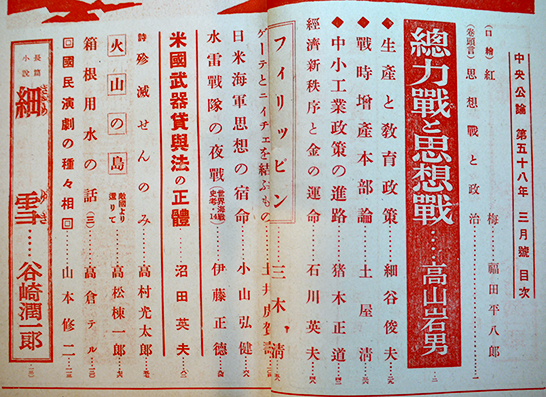 中央公論 第五十八年 三月號 目次
(口繪) 紅梅 福田平八郎
(卷頭言) 思想戰と政治……一
總力戰と思想戰……高山岩男……二
◆生產と敎育政策 細谷俊夫
◆戰時增產本部論 土屋淸
◆中小工業政策の進路 猪木正道
經濟新秩序と金の運命 石川英夫
フィリッピン 三木淸
ゲーテとニイチェを結ぶもの 土井虎賀壽
日米海軍思想の宿命 小山弘健
水雷戰隊の夜戰(世界海戰史考・14) 伊藤正德
米國武器貸與法の正體 沼田英夫
詩 殄滅せんのみ 高村光太郎
火山の島 敵國より還りて 高松棟一郎
箱根用水の話(三) 高倉テル
□國民演劇の種々相□ 山本修二
長篇小說 細雪……谷崎潤一郎
ささめゆき